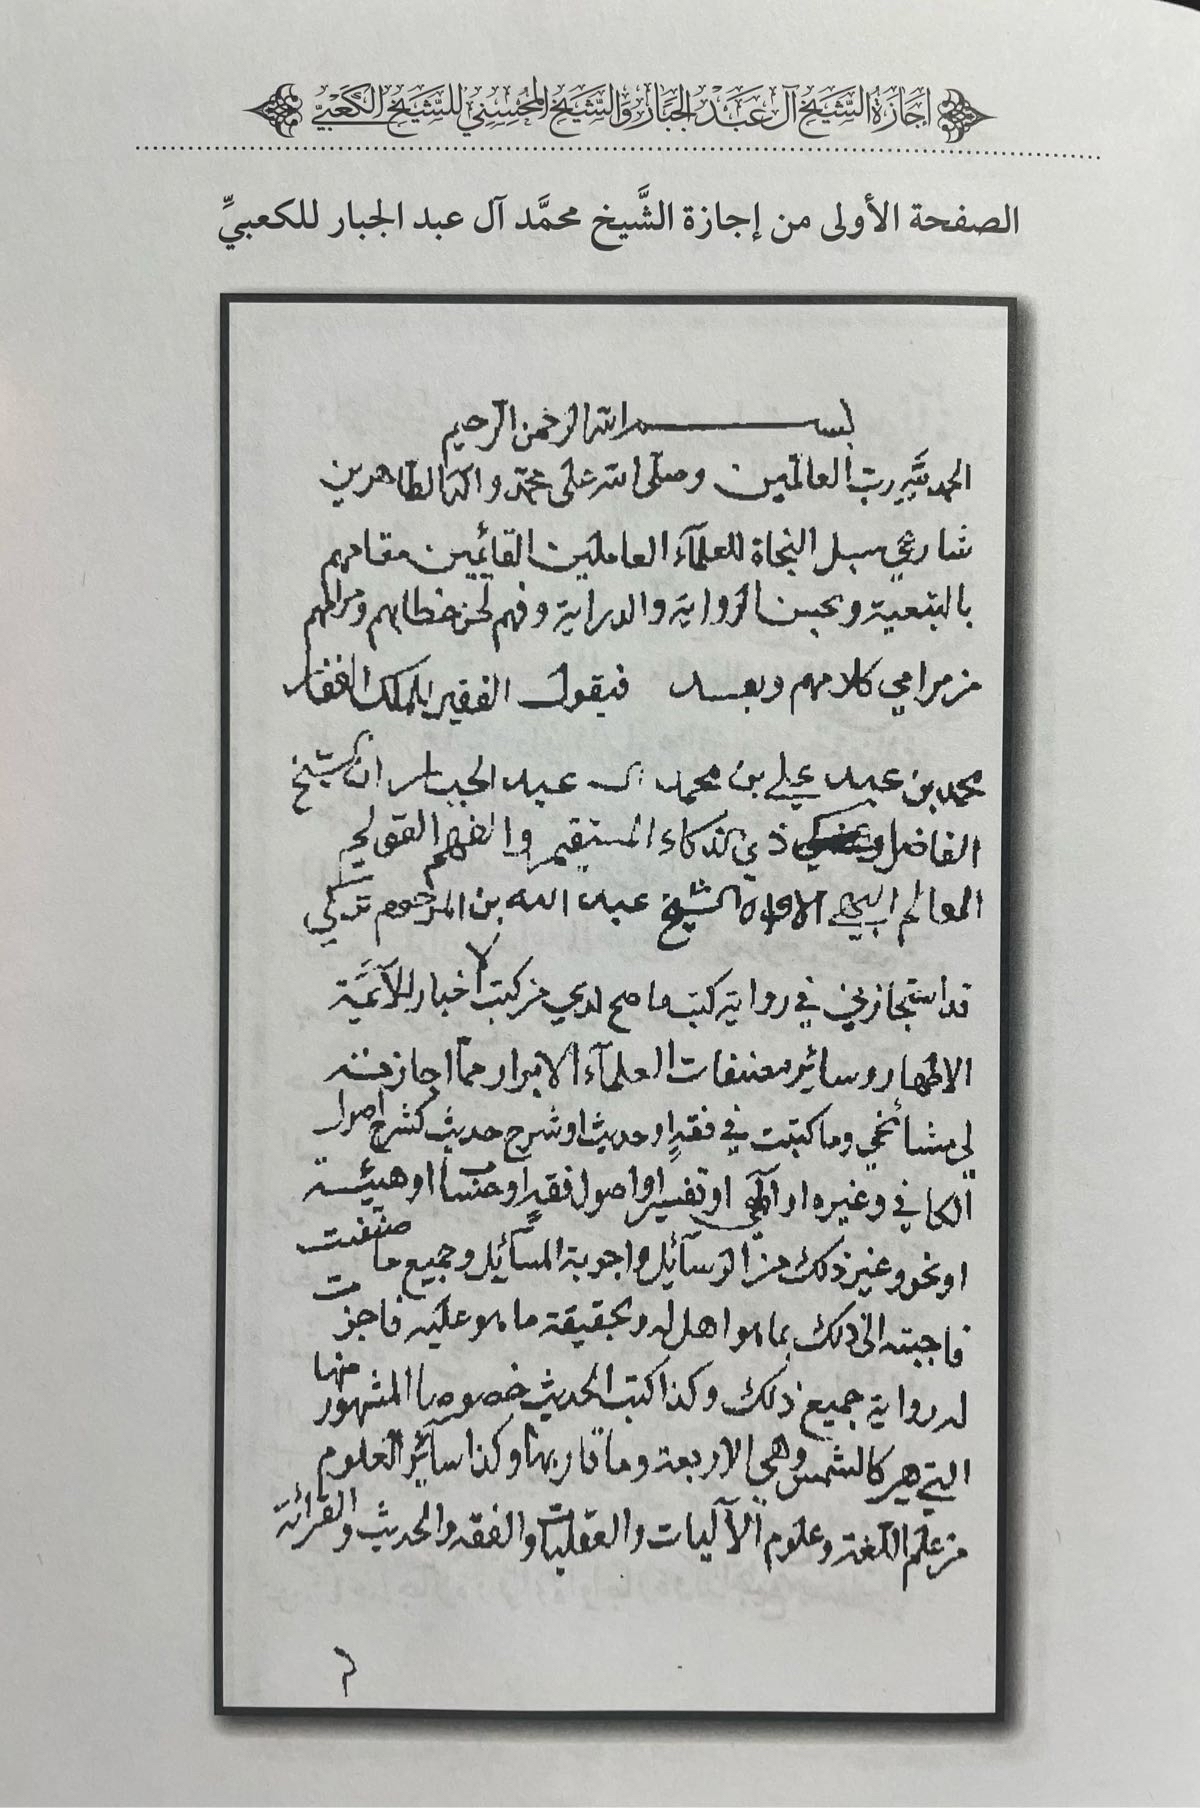 إجازة الشيخ آل عبد الجبار والشيخ المحسني للشيخ الكعبي
الصفحة الأولى من إجازة الشَّيخ محمَّد آل عبد الجبار للكعبيِّ
بسم الله الرحمن الرحيم
الحمد لله رب العالمين وصلى الله على محمد واله الطاهرين
شارعي سبل النجاة للعلمآء العاملين القائمين مقامهم
بالتبعية وبحسن الرواية والدراية وفهم لحن خطابهم ومرامهم
من مرامي كلامهم وبعد فيقول الفقير للملك الغفار
محمد بن عبد علي بن محمد ال عبد الجبار ان الشيخ
الفاضل ذي الذكاء المستقيم والفهم القوي
العالم الاواه الشيخ عبد الله بن المرحوم تركي
قد استجازني في رواية كتب ما صح لدي من كتب اخبار الآئمَّة
الاطهار وساير مصنفات العلمآء الابرار مما اجازته
لي مشائخي وما كتبت في فقهٍ او حديث او شرح حديث كشرح اصول
الكافي وغيره او او تفسير او اصول فقهٍ او حساب او هيئة
او نحو وغير ذلك من الرسآئل واجوبة المسآئل وجميع ما صنفت
فاجبته الى ذلك بما هو اهل له وبحقيقة ما هو عليه فاجزت
له رواية جميع ذلك وكذا كتب الحديث خصوصا المشهور منها
التي هي كالشمس وهي الاربعة وما قاربها وكذا سآئر العلوم
من علم اللغة وعلوم الآليات والعقليات والفقه والحديث والقرائة